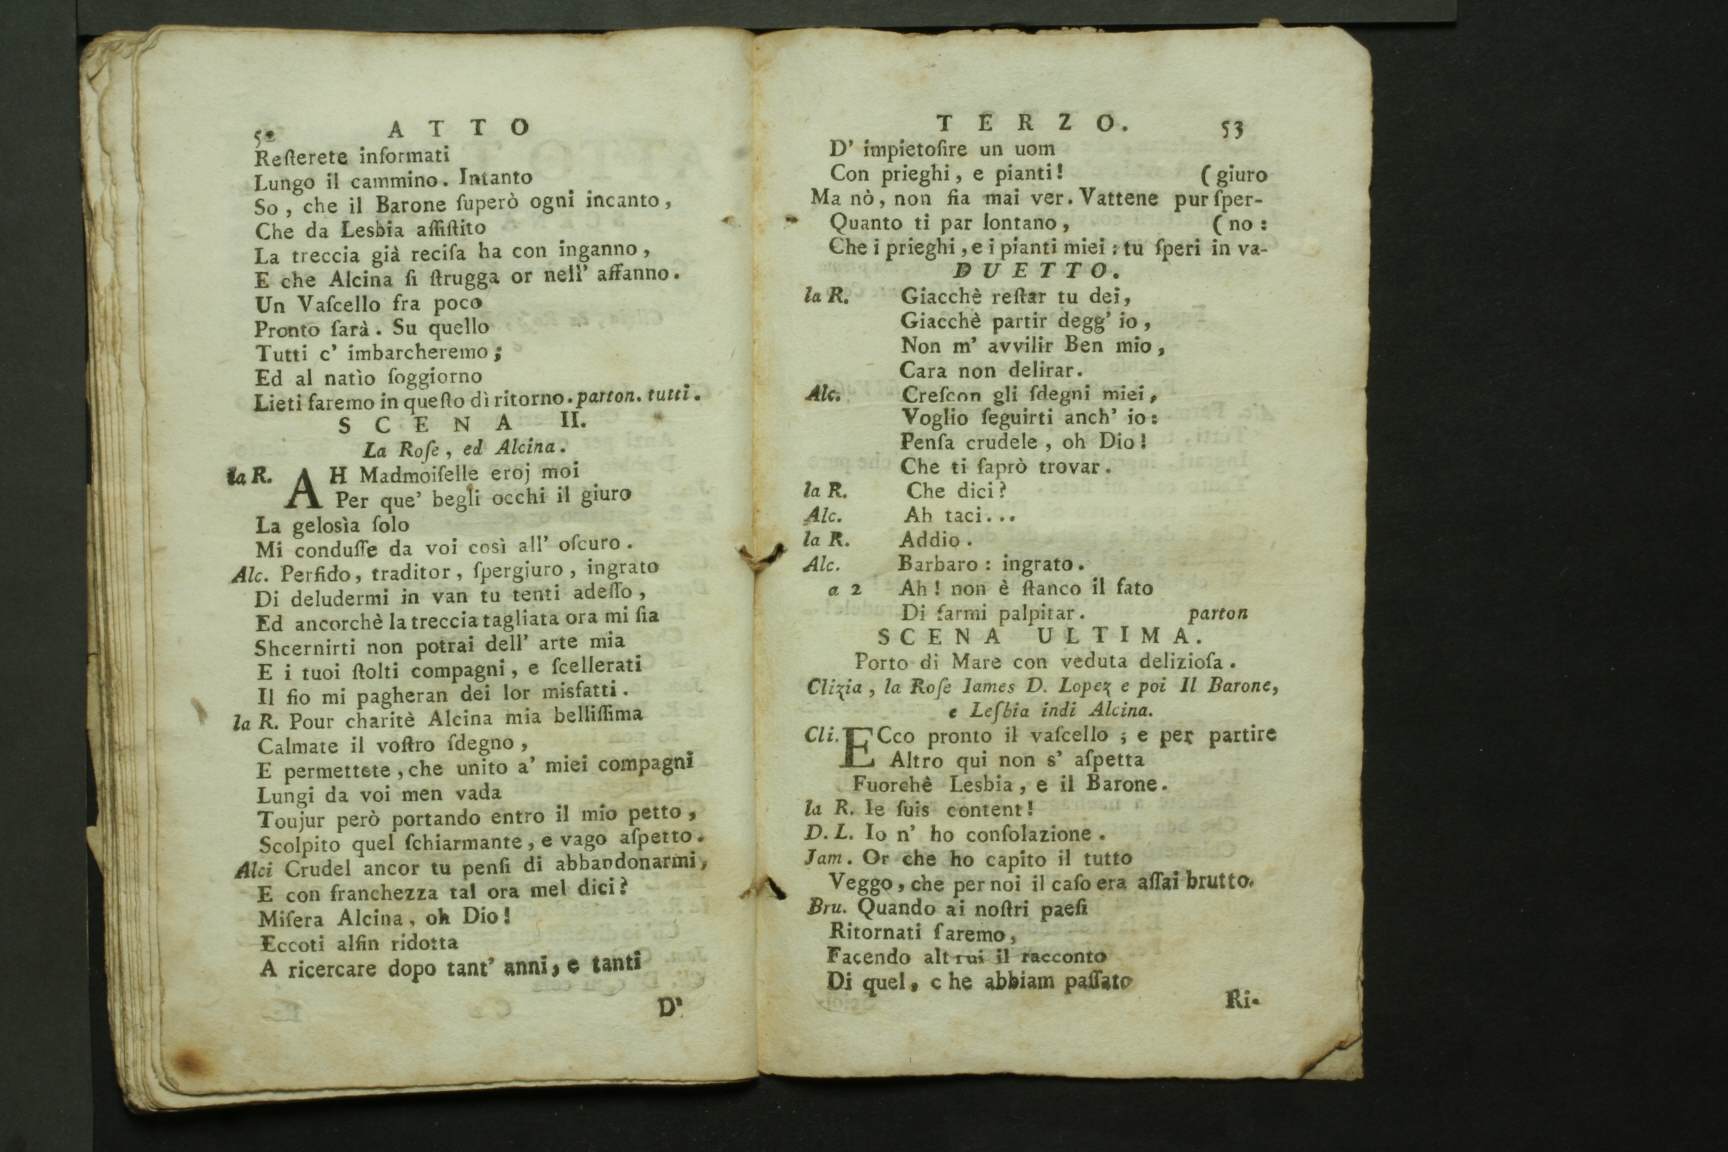 52 ATTO
Reſterete informati
Lungo il cammino. Intanto
So, che il Barone ſuperò ogni incanto,
Che da Lesbia aſſiſtito
La treccia già reciſa ha con inganno,
E che Alcina ſi ſtrugga or nell' affanno.
Un Vaſcello fra poco
Pronto ſarà. Su quello
Tutti c' imbarcheremo;
Ed al natìo ſoggiorno
Lieti faremo in queſto dì ritorno. parton. tutti.
SCENA II.
La Roſe, ed Alcina.
la R. AH Madmoiſelle eroj moi
Per que' begli occhi il giuro
La gelosìa ſolo
Mi conduſſe da voi così all' oſcuro.
Alc. Perfido, traditor, ſpergiuro, ingrato
Di deludermi in van tu tenti adeſſo,
Ed ancorchè la treccia tagliata ora mi ſia
Shcernirti non potrai dell' arte mia
E i tuoi ſtolti compagni, e ſcellerati
Il fio mi pagheran dei lor misfatti.
la R. Pour charitè Alcina mia belliſſima
Calmate il voſtro ſdegno,
E permettete, che unito a' miei compagni
Lungi da voi men vada
Toujur però portando entro il mio petto,
Scolpito quel ſchiarmante, e vago aſpetto.
Alci Crudel ancor tu penſi di abbandonarmi,
E con franchezza tal ora mel dici?
Miſera Alcina, oh Dio!
Eccoti alfin ridotta
A ricercare dopo tant' anni, e tanti
D'
TERZO. 53
D' impietoſire un uom
Con prieghi, e pianti! (giuro
Ma nò, non ſia mai ver. Vattene pur ſper-
Quanto ti par lontano, (no:
Che i prieghi, e i pianti miei: tu ſperi in va-
DUETTO.
la R. Giacchè reſtar tu dei,
Giacchè partir degg' io,
Non m' avvilir Ben mio,
Cara non delirar.
Alc. Creſcon gli ſdegni miei,
Voglio ſeguirti anch' io:
Penſa crudele, oh Dio!
Che ti ſaprò trovar.
la R. Che dici?
Alc. Ah taci...
la R. Addio.
Alc. Barbaro: ingrato.
a 2 Ah! non è ſtanco il fato
Di farmi palpitar. parton
SCENA ULTIMA.
Porto di Mare con veduta delizioſa.
Clizia, la Roſe Iames D. Lopez e poi Il Barone,
e Leſbia indi Alcina.
Cli. ECco pronto il vaſcello; e per partire
Altro qui non s' aſpetta
Fuorchê Lesbia, e il Barone.
la R. Ie ſuis content!
D. L. Io n' ho conſolazione.
Jam. Or che ho capito il tutto
Veggo, che per noi il caſo era aſſai brutto.
Bru. Quando ai noſtri paeſi
Ritornati ſaremo,
Facendo altrui il racconto
Di quel, c he abbiam paſſato
Ri-